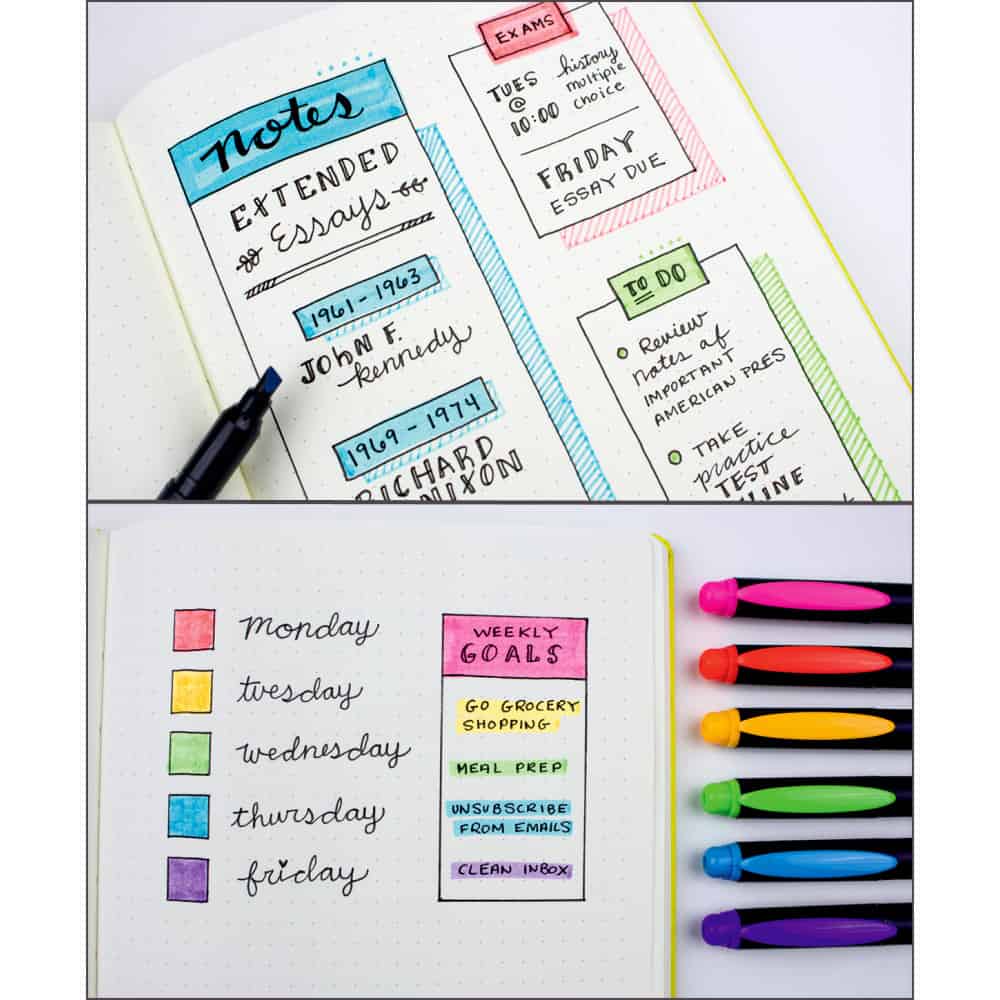 notes
EXTENDED
Essays
1961-1963
JOHN F.
Kennedy
1969-1974
RICHARD
NIXON
EXAMS
TUES
@
10:00
history
multiple
choice
FRIDAY
ESSAY DUE
TO DO
Review
notes of
IMPORTANT
AMERICAN PRES
TAKE
practice
TEST
monday
tuesday
wednesday
thursday
friday
WEEKLY
GOALS
GO GROCERY
SHOPPING
MEAL PREP
UNSUBSCRIBE
FROM EMAILS
CLEAN INBOX